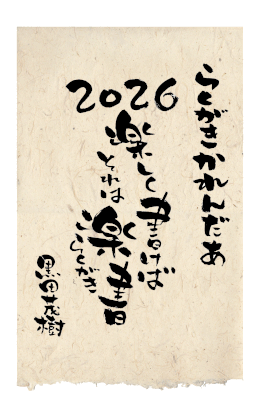 らくがきかれんだあ
2026
楽しく書けば
それは
楽書
らくがき
黒田茂樹